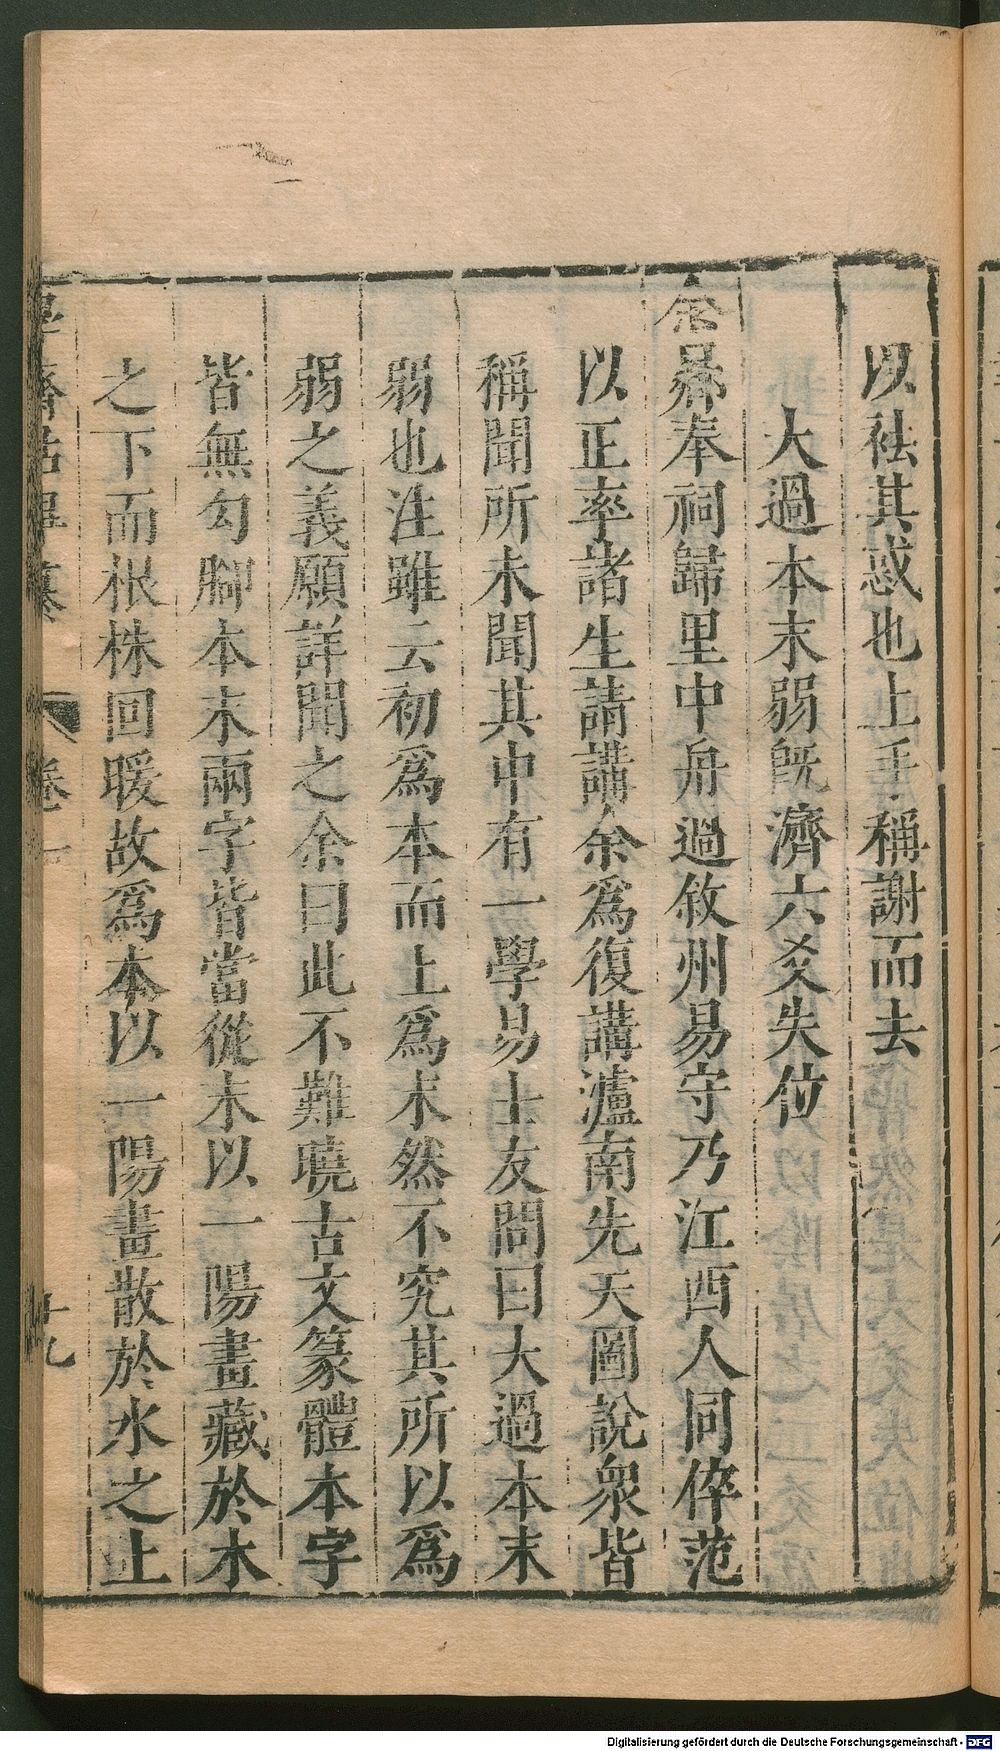 以祛其惑也上手稱謝而去
大過本末弱旣濟六爻失位
余㬎奉祠歸里中舟過敘州易守乃江酉人同倅范
以正率諸生請講余爲復講瀘南先天圖說衆皆
稱聞所未聞其中有一學易士友問曰大過本末
弱也注雖云初爲本而上爲末然不究其所以爲
弱之義願詳聞之余曰此不難曉古文篆體本字
皆無勾腳本末兩字皆當從木以一陽畫藏於木
之下而根株回暖故爲本以一陽畫散於水之上
學齋佔畢纂 卷一 十九
Digitalisierung gefördert durch die Deutsche Forschungsgemeinschaft - DFG